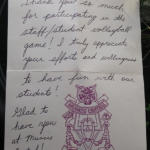 Thank you so much
for participating in the
staff/student volleyball
game! I truly appreciate
your efforts and willingness
to have fun with our
students!
Glad
to have
you
at